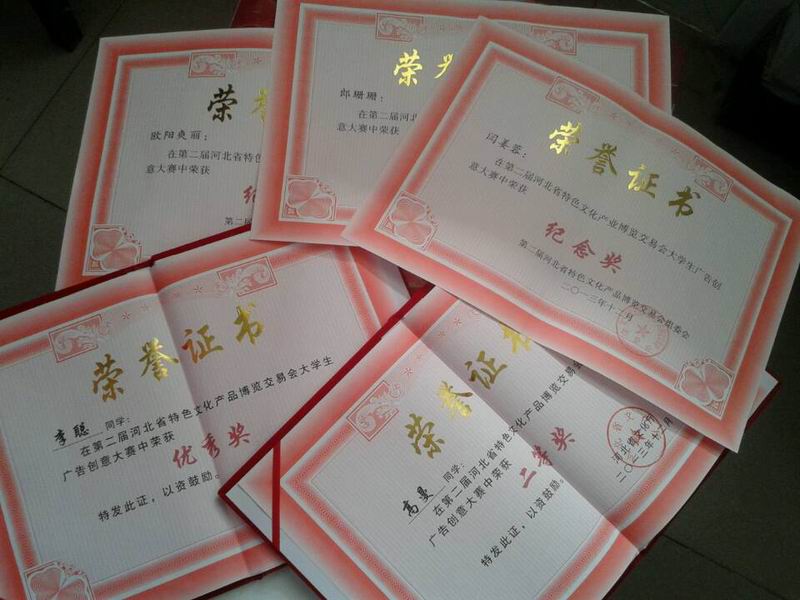 荣誉
欧阳爽丽：
在第二届河北省特色
意大赛中荣获
纪
第二届
荣
郎珊珊：
在第二届河北
意大赛中荣获
纪
荣誉证书
闫姜蓉：
在第二届河北省特色文化产业博览交易会大学生广告创
意大赛中荣获
纪念奖
第二届河北省特色文化产品博览交易会组委会
二〇一三年十二月
荣誉证书
李聪 同学：
在第二届河北省特色文化产品博览交易会大学生
广告创意大赛中荣获
优秀奖
特发此证，以资鼓励。
荣誉证书
高曼 同学：
在第二届河北省特色文化产品博览交易会
广告创意大赛中荣获
二等奖
特发此证，以资鼓励。
河北省文化厅
二〇一三年十二月